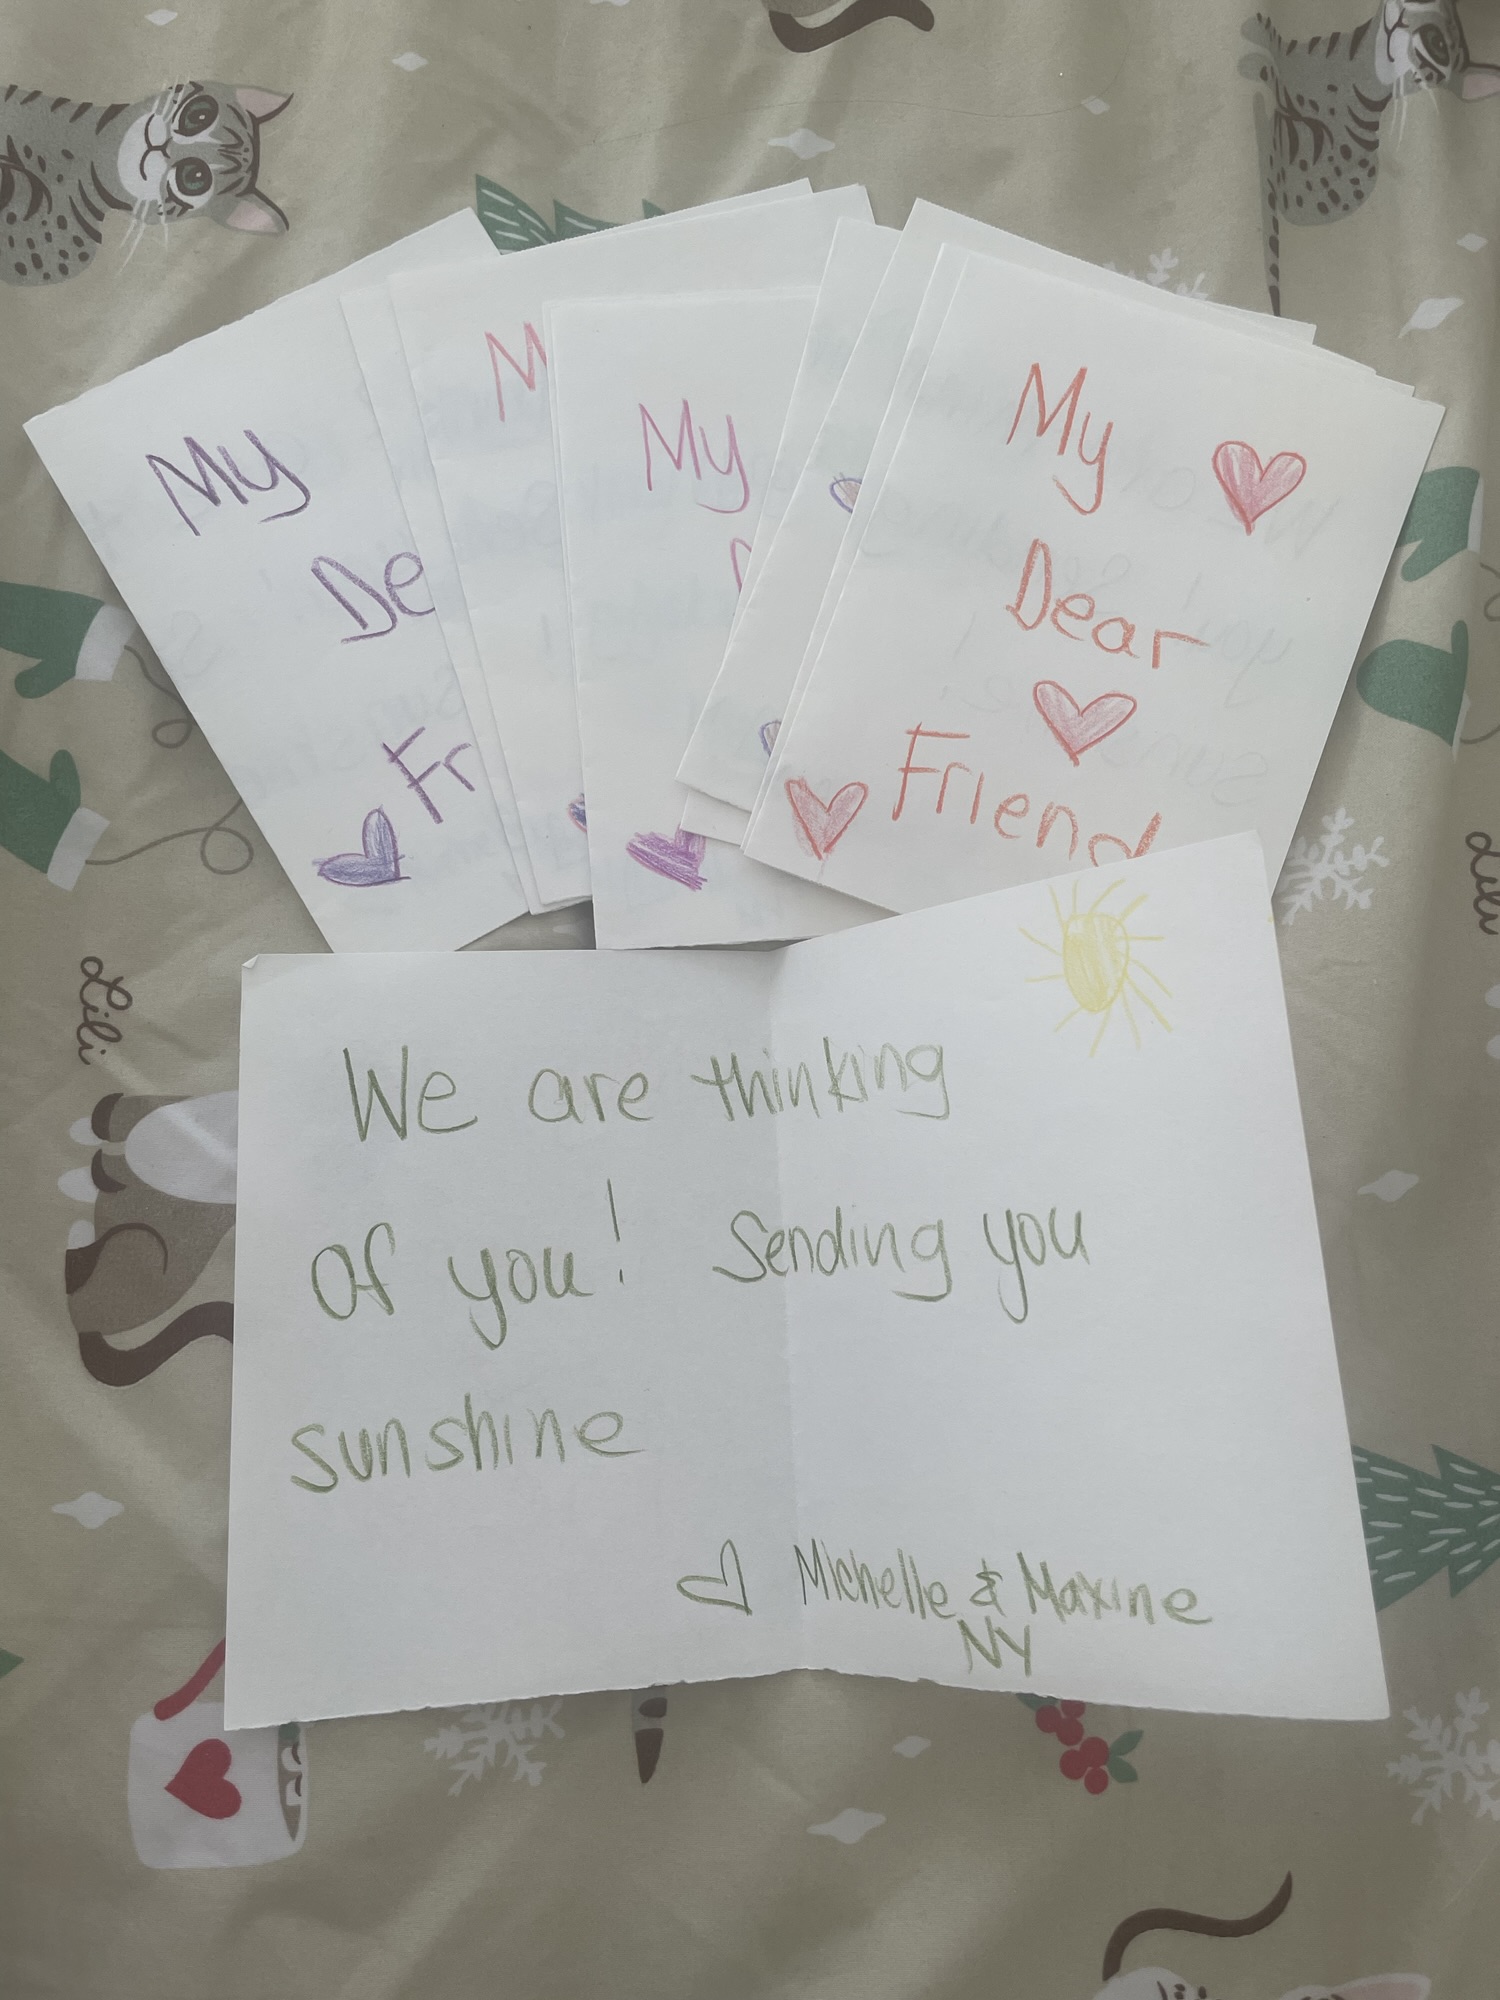 My
De
Fr
M
My
D
My
Dear
Friend
We are thinking
of you! Sending you
sunshine
Michelle & Maxine
NY
Lili
Lili